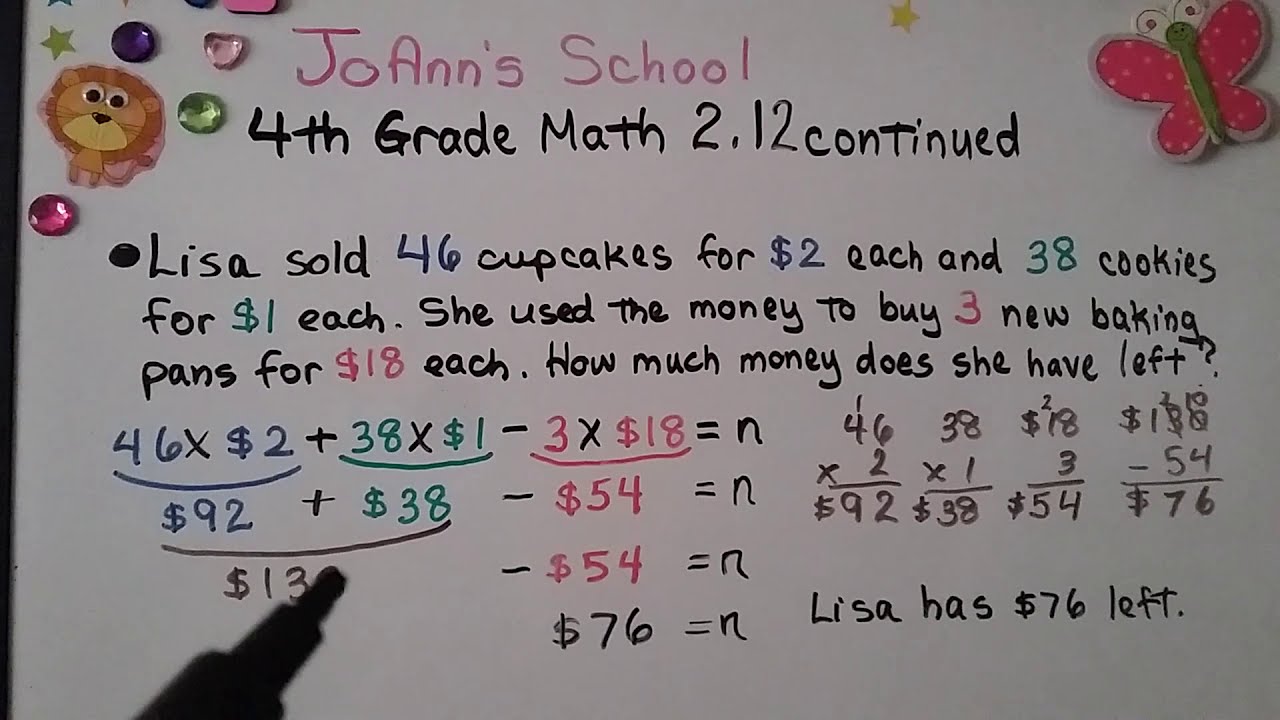 JoAnn's School
4th Grade Math 2.12 continued
• Lisa sold 46 cupcakes for $2 each and 38 cookies
for $1 each. She used the money to buy 3 new baking
pans for $18 each. How much money does she have left?
46 x $2 + 38 x $1 - 3 x $18 = n
$92 + $38 - $54 = n
- $54 = n
$76 = n
1
46
x 2
$92
38
x 1
$38
2
$18
3
$54
- 54
$76
Lisa has $76 left.